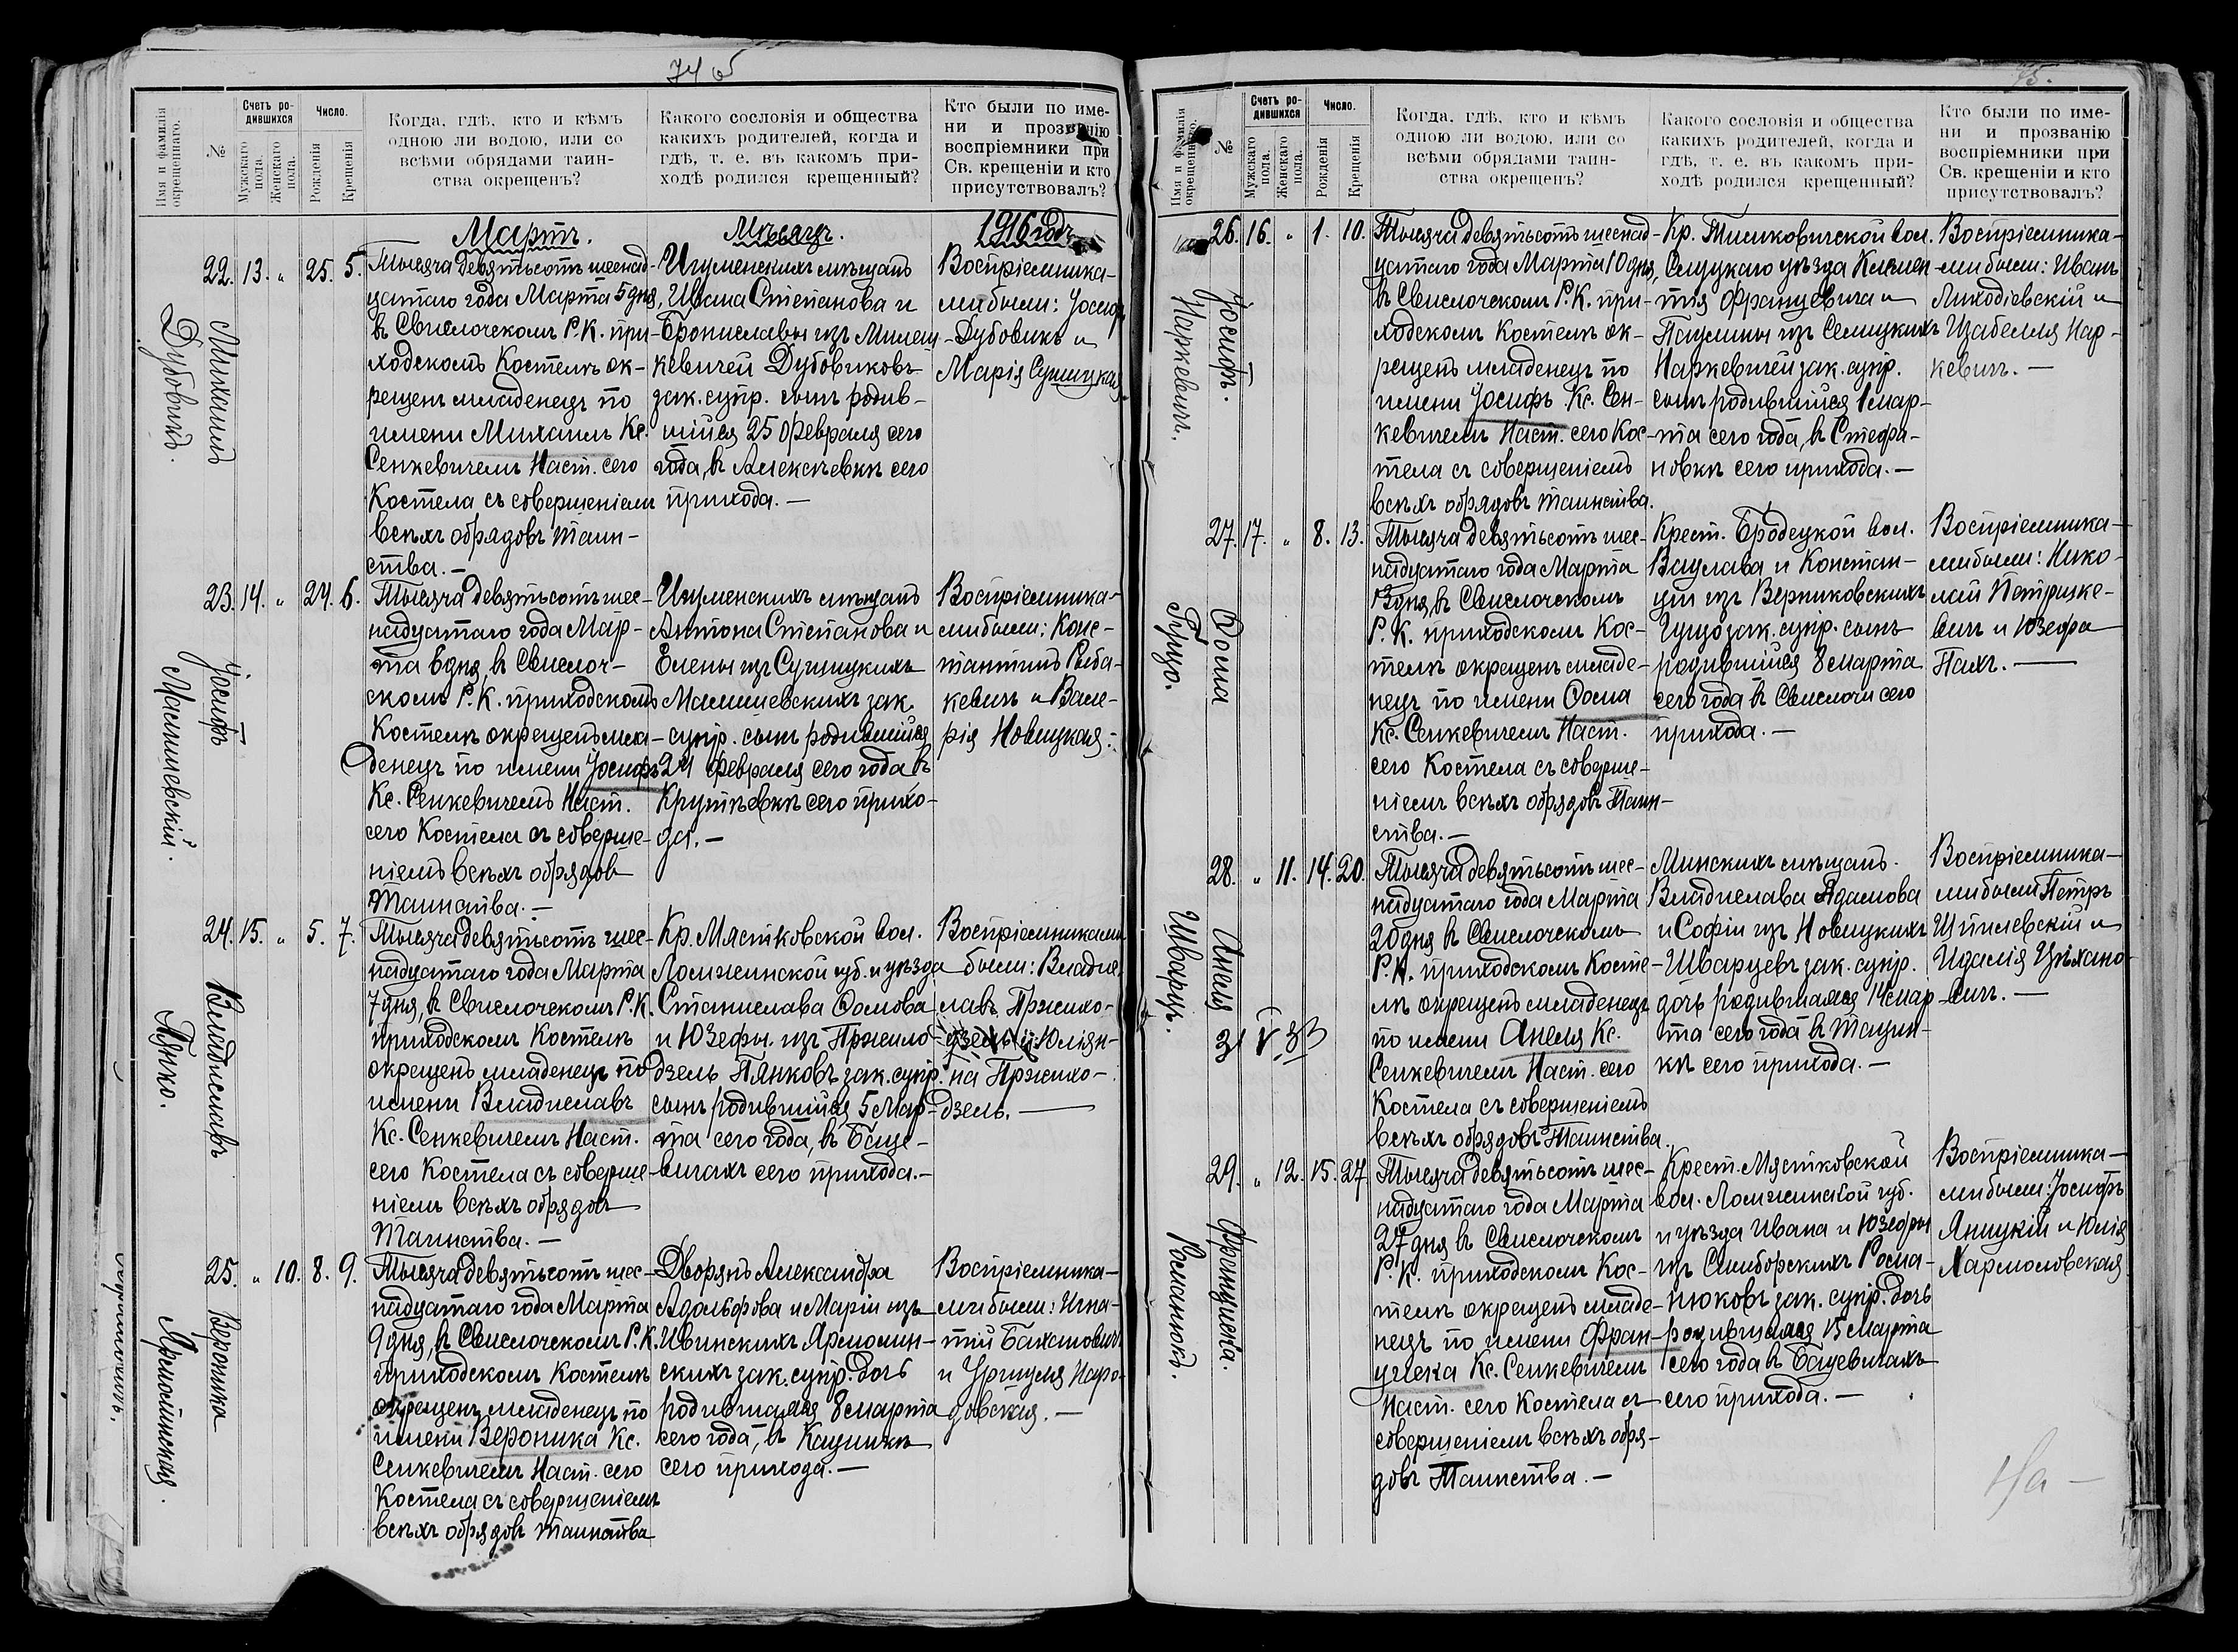 74 об
Имя и фамилія окрещеннаго.
№
Счетъ ро-
дившихся
Мужскаго пола.
Женскаго пола.
Число.
Рожденія
Крещенія
Когда, гдѣ, кто и кѣмъ
одною ли водою, или со
всѣми обрядами таин-
ства окрещенъ?
Какого сословія и общества
какихъ родителей, когда и
гдѣ, т. е. въ какомъ при-
ходѣ родился крещенный?
Кто были по име-
ни и прозванію
воспріемники при
Св. крещеніи и кто
присутствовалъ?
Мартъ. Мѣсяцъ. 1916 годъ
22. 13. „ 25. 5.
Михаилъ
Дубовикъ.
Тысяча девятьсотъ шеснад-
цатаго года Марта 5 дня,
въ Свислочскомъ Р. К. при-
ходскомъ Костелѣ ок-
рещенъ младенецъ по
имени Михаилъ Кс.
Сенкевичемъ Наст. сего
Костела съ совершеніемъ
всѣхъ обрядовъ таин-
ства.–
Игуменскихъ мѣщанъ
Ивана Степанова и
Брониславы изъ
кевичей Дубовиковъ
зак. супр. сынъ родив-
шійся 25 февраля сего
года, въ Алексѣевкѣ сего
прихода.–
Воспріемника-
ми были: Іосифъ
Дубовикъ и
Марія Сушицкая
23. 14. „ 24. 6.
Іосифъ
Малишевскій.
Тысяча девятьсотъ шес-
надцатаго года Мар-
та 6 дня, въ Свислоч-
скомъ Р. К. приходскомъ
Костелѣ окрещенъ мла-
денецъ по имени Іосифъ
Кс. Сенкевичемъ Наст.
сего Костела съ соверше-
ніемъ всѣхъ обрядовъ
Таинства.–
Игуменскихъ мѣщанъ
Антона Степанова и
Елены изъ Сушицкихъ
Малишевскихъ зак.
супр. сынъ родившійся
24 февраля сего года въ
Крутѣевкѣ сего прихо-
да.–
Воспріемника-
ми были: Конс-
тантинъ Рыба-
кевичъ и Вале-
рія Новицкая.
24. 15. „ 5. 7.
Владиславъ
Пянко.
Тысяча девятьсотъ шес-
надцатаго года Марта
7 дня, въ Свислочскомъ Р. К.
приходскомъ Костелѣ
окрещенъ младенецъ по
имени Владиславъ
Кс. Сенкевичемъ Наст.
сего Костела съ соверше-
ніемъ всѣхъ обрядовъ
Таинства.–
Кр. Мястковской вол.
Ломжинской губ. и уѣзда
Станислава Ѳомова
и Юзефы изъ Пржихо-
дзень Пянковъ зак. супр.
сынъ родившійся 5 Мар-
та сего года, въ Баце-
вичахъ сего прихода.–
Воспріемниками
были: Владис-
лавъ Пржихо-
дзень и Юліян-
на Пржихо-
дзень.–
25. „ 10. 8. 9.
Вероника
Ярмолинская.
Тысяча девятьсотъ шес-
надцатаго года Марта
9 дня, въ Свислочскомъ Р. К.
приходскомъ Костелѣ
окрещенъ младенецъ по
имени Вероника Кс.
Сенкевичемъ Наст. сего
Костела съ совершеніемъ
всѣхъ обрядовъ таинства
Дворянъ Александра
Адольфова и Маріи изъ
Ивинскихъ Ярмолин-
скихъ зак. супр. дочь
родившаяся 8 марта
сего года, въ Кацинкѣ
сего прихода.–
Воспріемника-
ми были: Игна-
тій Бахановичъ
и Уршуля Наро-
довская.–
75.
Имя и фамилія окрещеннаго.
№
Счетъ ро-
дившихся
Мужскаго пола.
Женскаго пола.
Число.
Рожденія
Крещенія
Когда, гдѣ, кто и кѣмъ
одною ли водою, или со
всѣми обрядами таин-
ства окрещенъ?
Какого сословія и общества
какихъ родителей, когда и
гдѣ, т. е. въ какомъ при-
ходѣ родился крещенный?
Кто были по име-
ни и прозванію
воспріемники при
Св. крещеніи и кто
присутствовалъ?
26. 16. „ 1. 10.
Іосифъ.
Наркевичъ.
Тысяча девятьсотъ шеснад-
цатаго года Марта 10 дня,
въ Свислочскомъ Р. К. при-
ходскомъ Костелѣ ок-
рещенъ младенецъ по
имени Іосифъ Кс. Сен-
кевичемъ Наст. сего Кос-
тела съ совершеніемъ
всѣхъ обрядовъ таинства.
Кр. Тимковичской вол.
Слуцкаго уѣзда Климен-
тія Францевича и
Паулины изъ Селицкихъ
Наркевичей зак. супр.
сынъ родившійся 1 мар-
та сего года, въ Стефа-
новкѣ сего прихода.–
Воспріемника-
ми были: Иванъ
Лиходіевскій и
Изабелля Нар-
кевичъ.–
27. 17. „ 8. 13.
Ѳома
Гуцо.
Тысяча девятьсотъ шес-
надцатаго года Марта
13 дня, въ Свислочскомъ
Р. К. приходскомъ Кос-
телѣ окрещенъ младе-
нецъ по имени Ѳома
Кс. Сенкевичемъ Наст.
сего Костела съ соверше-
ніемъ всѣхъ обрядовъ Таин-
ства.–
Крест. Бродецкой вол.
Вацлава и Констан-
ціи изъ Верниковскихъ
Гуцо зак. супр. сынъ
родившійся 8 марта
сего года въ Свислочи сего
прихода.–
Воспріемника-
ми были: Нико-
лай Петрашке-
вичъ и Юзефа
Пахъ.–
28. „ 11. 14. 20.
Анеля
Шварцъ.
Тысяча девятьсотъ шес-
надцатаго года Марта
20 дня въ Свислочскомъ
Р. К. приходскомъ Косте-
лѣ окрещенъ младенецъ
по имени Анеля Кс.
Сенкевичемъ Наст. сего
Костела съ совершеніемъ
всѣхъ обрядовъ Таинства.
Минскихъ мѣщанъ.
Владислава Адамова
и Софіи изъ Новицкихъ
Шварцевъ зак. супр.
дочь родившаяся 14 мар-
та сего года въ Тацин-
кѣ сего прихода.–
Воспріемника-
ми были Петръ
Шпилевскій и
Идалія Цѣхано-
вичъ.–
29. „ 12. 15. 27
Францишка.
Романюкъ.
Тысяча девятьсотъ шес-
надцатаго года Марта
27 дня въ Свислочскомъ
Р. К. приходскомъ Кос-
телѣ окрещенъ младе-
нецъ по имени Фран-
цишка Кс. Сенкевичемъ
Наст. сего Костела съ
совершеніемъ всѣхъ обря-
довъ Таинства.–
Крест. Мястковской
вол. Ломжинской губ.
и уѣзда Ивана и Юзефы
изъ Самборскихъ Рома-
нюковъ зак. супр. дочь
родившаяся 15 марта
сего года въ Бацевичахъ
сего прихода.–
Воспріемника-
ми были: Іосифъ
Яницкій и Юлія
Хармоловская
На –